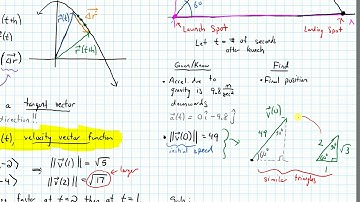 r(t)
Δr
r(t+h)
(t)
(Δr)
a tangent vector
direction!!
(t), velocity vector function
-2⟩ ⇒ ||v(1)|| = √5
-4⟩ ||v(2)|| = √17 ← larger
faster at t=2 than at t=1
60°
Launch Spot
Landing Spot
Let t = # of seconds
after launch
Given/Know
• Accel. due to
gravity is 9.8 m/sec²
downwards
a(t) = 0i - 9.8j
• ||v(0)|| = 49
initial speed
Find
• Final position
v(0)
49
30°
60°
2
30°
√3
60°
1
similar triangles